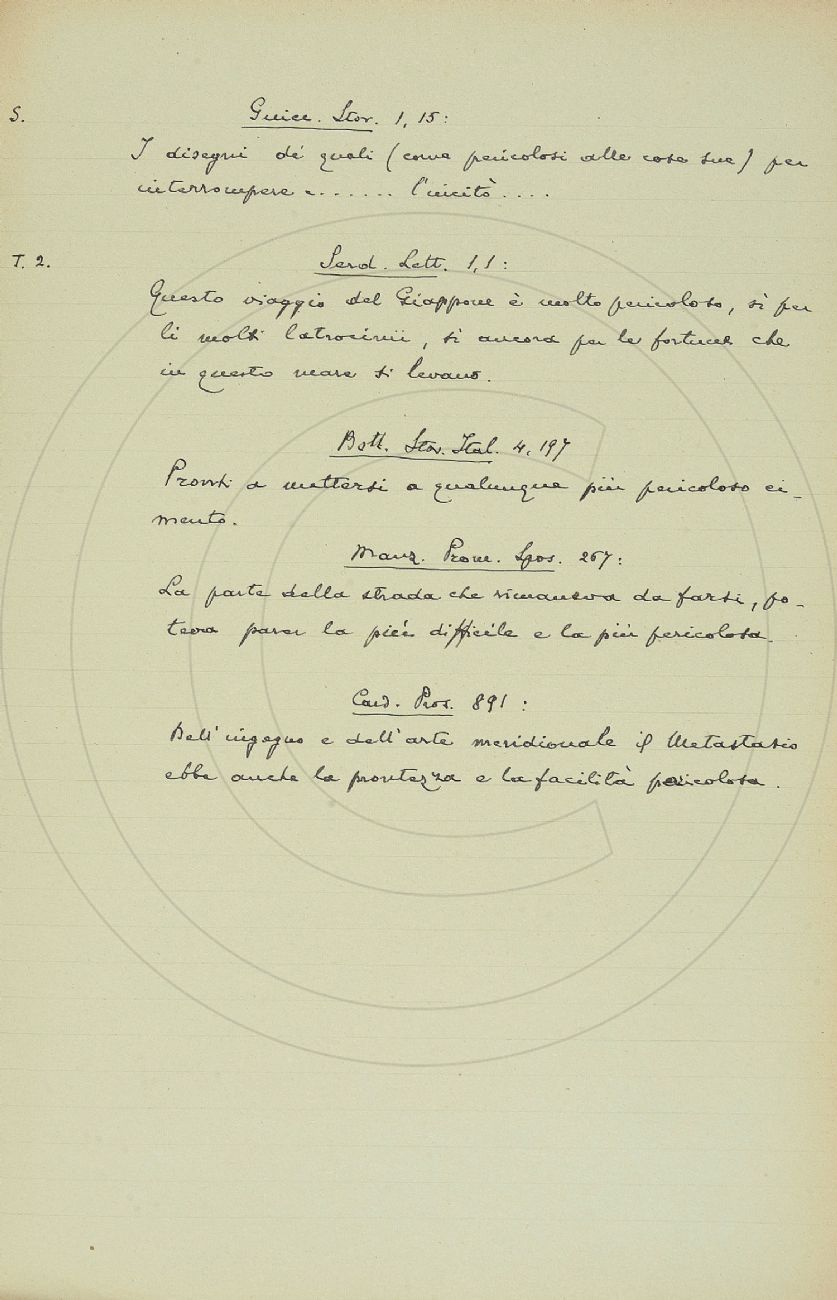 S. Guicc. Stor. 1, 15:
I disegni de' quali (come pericolosi alle cose sue) per
interrompere e....... l'unità....
T. 2. Serd. Lett. 1, 1:
Questo viaggio del Giappone è molto pericoloso, sì per
li molti latrocinii, sì ancora per le fortune che
in questo mare si levano.
Bott. Stor. Ital. 4, 197
Pronti a mettersi a qualunque più pericoloso ci-
mento.
Manz. Prom. Spos. 267:
La parte della strada che rimaneva da farsi, po-
teva parer la più difficile e la più pericolosa.
Card. Pros. 891:
Dell'ingegno e dell'arte meridionale il Metastasio
ebbe anche la prontezza e la facilità pericolosa.